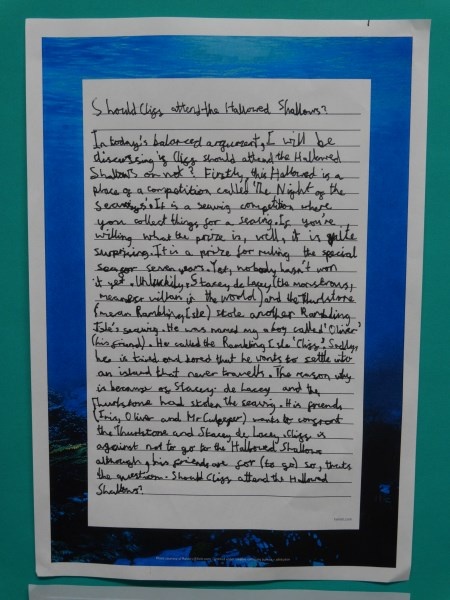 Should Cliff attend the Hallowed Shallows?
In today's balanced argument, I will be
discussing if Cliff should attend the Hallowed
Shallows or not? Firstly, this Hallowed is a
place of a competition called 'The Night of the
Seawigs'. It is a seawig competition where
you collect things for a seawig. If you're
willing what the prize is, well, it is quite
surprising. It is a prize for ruling the special
sea for seven years. Yet, nobody hasn't won
it yet. Unluckily, Stacey de Lacey (the monstrous,
meanest villan in the world) and the Thurlstone
(mean Rambling Isle) stole another Rambling
Isle's seawig. He was named my a boy called 'Oliver'
(his friend). He called the Rambling Isle 'Cliff'. Sadly,
he is tired and bored that he wants to settle into
an island that never travells. The reason why
is because of Stacey de Lacey and the
Thurlstone had stolen the seawig. His friends
(Iris, Oliver and Mr Culpeper) wants to confront
the Thurlstone and Stacey de Lacey. Cliff is
against not to go to the Hallowed Shallows
although, his friends are for (to go) so, thats
the question. Should Cliff attend the Hallowed
Shallows?